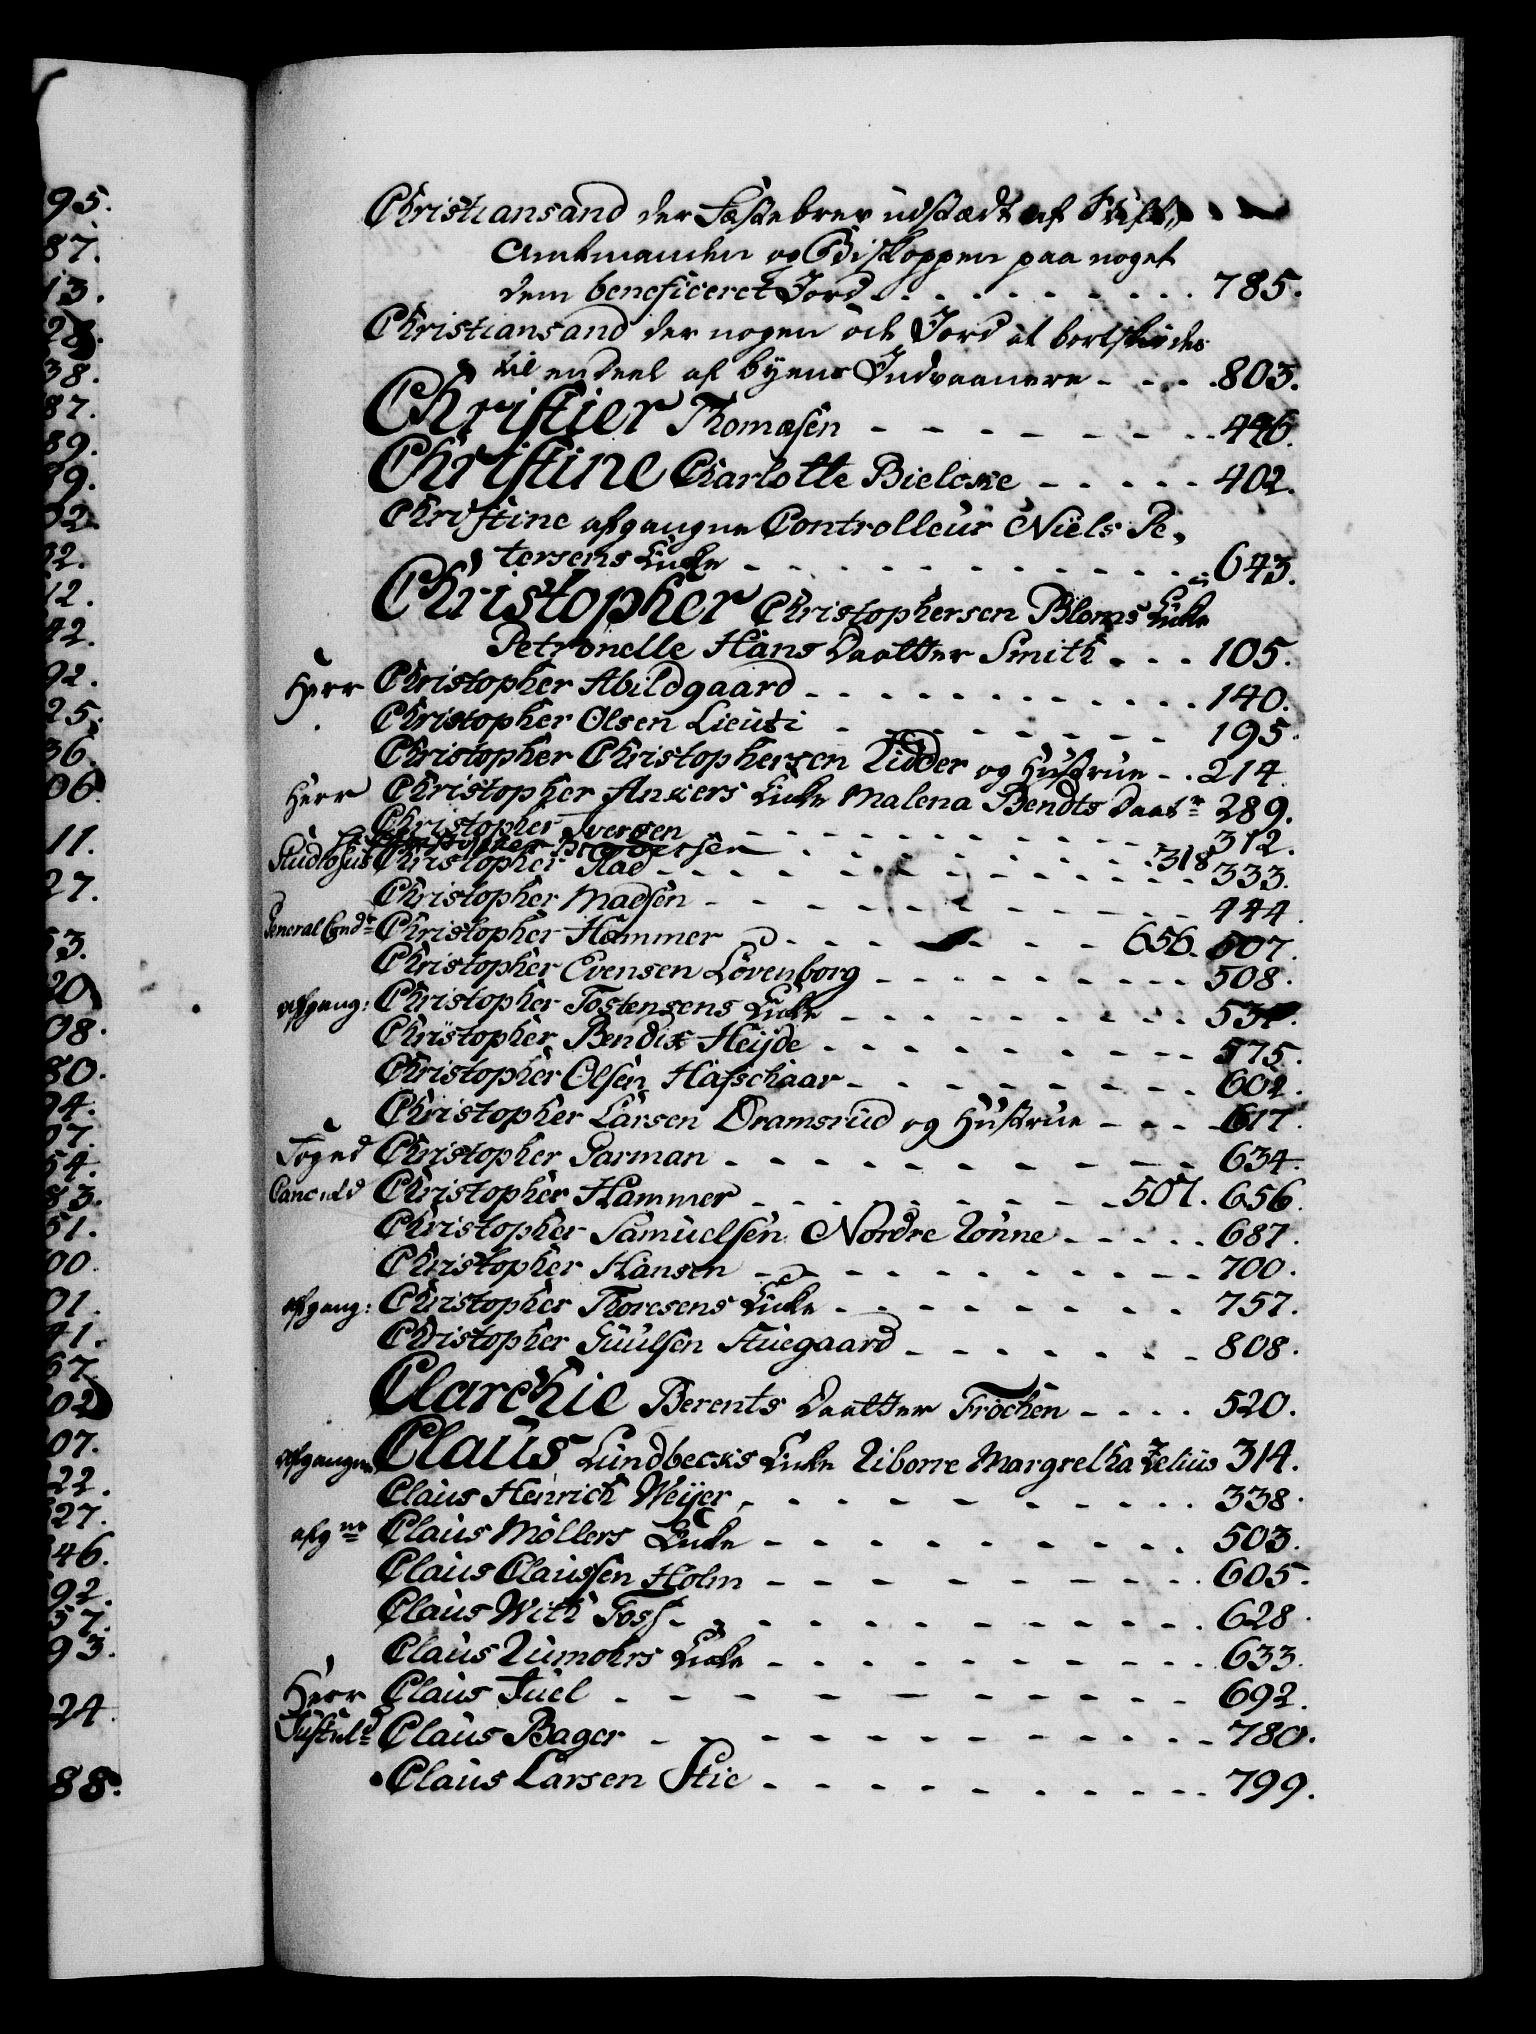 95.
87.
13.
28.
38.
87.
89.
89.
02.
02.
12.
42.
92.
25.
36.
06.
11.
27.
53.
20
08.
80.
94.
07.
54.
83.
51.
00.
01.
41.
67.
02
07.
22.
27.
46.
92.
57.
93.
24.
88.
Christiansand der Fæstebrev udstædt af Stift,,
Amtmanden og Biskoppen paa noget
dem beneficeret Jord . . . . . . . . . 785.
Christiansand der nogen öde Jord at bortskiödes
til endeel af byens Indvaanere - - - . 803.
Christier Thomæsen - - - - - - - - . 446.
Christine Charlotte Bielcke - - - - - 402.
Christine afgangne Controlleur Niels Pe,
tersens Encke - - - - - - - - - - - 643.
Christopher Christophersen Bloms Encke
Petronelle Hans Daatter Smith . . . . 105.
Herr Christopher Abildgaard - - - - - - - - - - - 140.
Christopher Olsen Lieuti - - - - - - - - - 195.
Christopher Christophersen Ridder og Hustrue - . 214.
Herr Christopher Ankers Encke Malena Bendts Daatr 289.
Christopher Iversen - - - - - - - - - - - 312.
318
Studiosus Christopher Rad - - - - - - - - - - - 333.
Christopher Madsen - - - - - - - - - - - 444.
General Condr Christopher Hammer - - - - - - - 656. 507.
Christopher Evensen Lövenborg - - - - - - - - - 508.
afgang: Christopher Tostensens Encke - - - - - - - - - 531.
Christopher Bendix Heyde - - - - - - - - - - 575.
Christopher Olsen Hafschaar - - - - - - - - - 602.
Christopher Larsen Dramsrud og Hustrue - - - - 617.
Foged Christopher Garman - - - - - - - - - - - 634.
Cancild Christopher Hammer - - - - - - - - - 507. 656.
Christopher Samuelsen Nordre Rönne - - - - - 687.
Christopher Hansen - - - - - - - - - - - 700.
afgang: Christopher Thoresens Encke - - - - - - - - 757.
Christopher Guulsen Stuegaard - - - - - - - 808.
Clarchie Berents Daatter Fröchen - - - - 520.
afgangen Claus Lundbecks Encke Liborre Margretha Zelius 314.
Claus Henrich Weyer - - - - - - - - - - - 338.
afgne Claus Möllers Encke - - - - - - - - - - 503.
Claus Claussen Holm - - - - - - - - - - 605.
Claus With Foss - - - - - - - - - - - - 628.
Claus Rumohrs Encke - - - - - - - - - - 633.
Herr Claus Juel - - - - - - - - - - - - 692.
Justitsld Claus Bager - - - - - - - - - - - - 780.
Claus Larsen Stie - - - - - - - - - - 799.